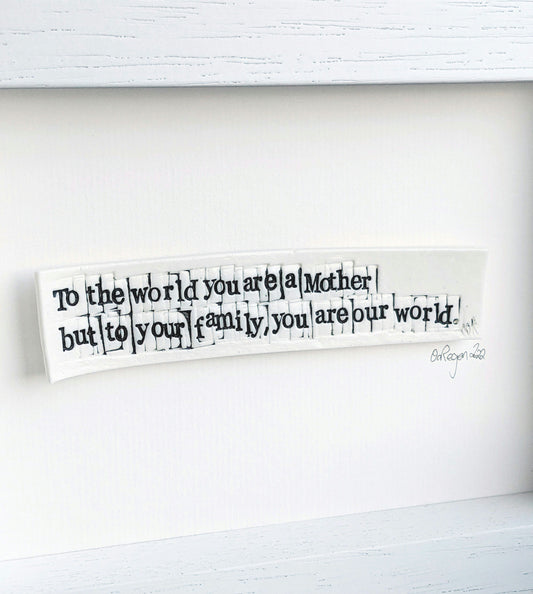 To the world you are a Mother
but to your family, you are our world.